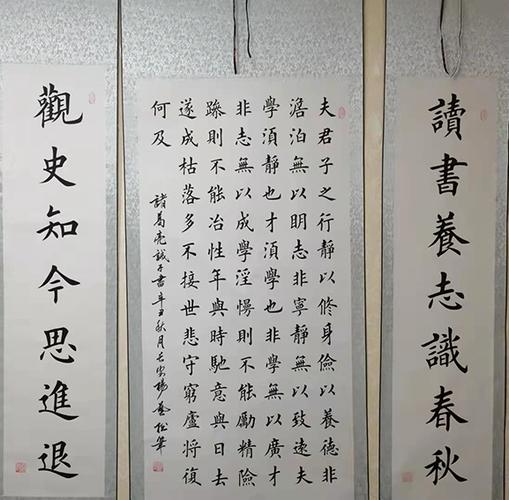 讀書養志識春秋
夫君子之行靜以修身儉以養德非
澹泊無以明志非寧靜無以致遠夫
學須靜也才須學也非學無以廣才
非志無以成學淫慢則不能勵精險
躁則不能冶性年與時馳意與日去
遂成枯落多不接世悲守窮廬將復
何及
諸葛亮誡子書辛丑秋月長安楊松筆
觀史知今思進退